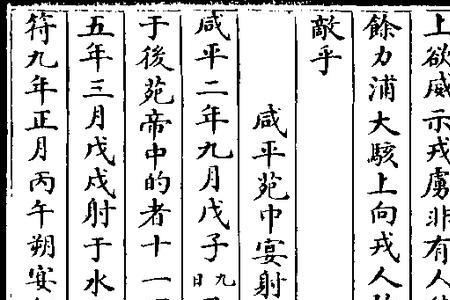 上欲威示戎虜非有人
餘力浦大駭上向戎人
敵乎
咸平苑中宴射
咸平二年九月戊子九日
于後苑帝中的者十一
五年三月戊戌射于水
符九年正月丙午朔宴